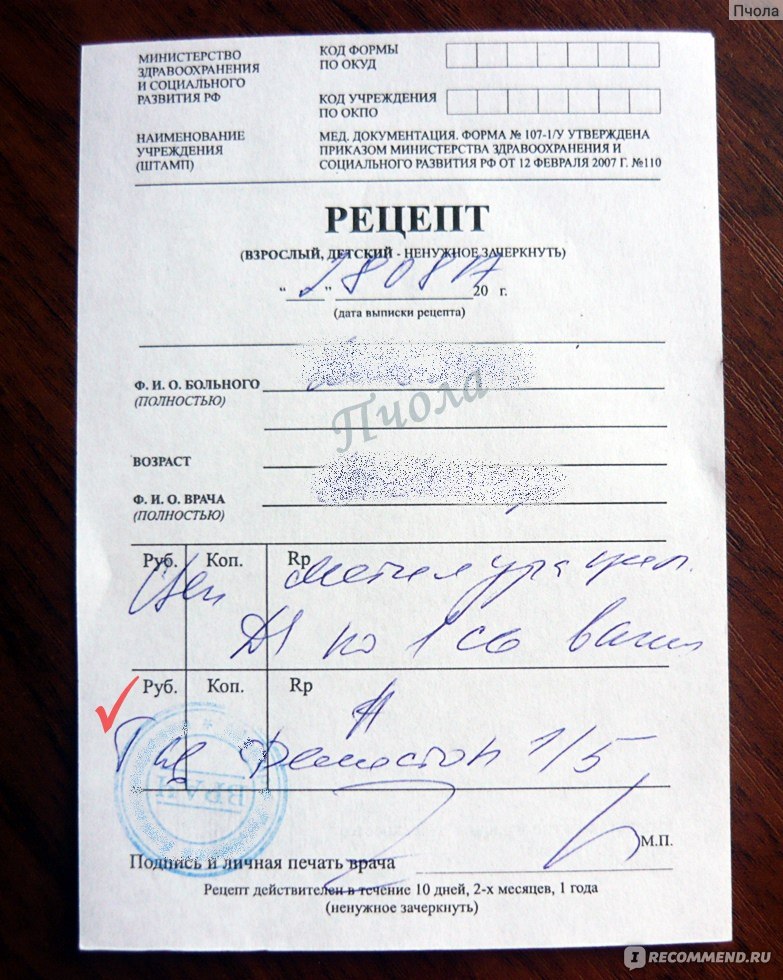 Пчола
МИНИСТЕРСТВО
ЗДРАВООХРАНЕНИЯ
И СОЦИАЛЬНОГО
РАЗВИТИЯ РФ
КОД ФОРМЫ
ПО ОКУД
КОД УЧРЕЖДЕНИЯ
ПО ОКПО
НАИМЕНОВАНИЕ
УЧРЕЖДЕНИЯ
(ШТАМП)
МЕД. ДОКУМЕНТАЦИЯ. ФОРМА № 107-1/У УТВЕРЖДЕНА
ПРИКАЗОМ МИНИСТЕРСТВА ЗДРАВООХРАНЕНИЯ И
СОЦИАЛЬНОГО РАЗВИТИЯ РФ ОТ 12 ФЕВРАЛЯ 2007 Г. №110
РЕЦЕПТ
(ВЗРОСЛЫЙ, ДЕТСКИЙ - НЕНУЖНОЕ ЗАЧЕРКНУТЬ)
280817
"____" ____________20 г.
(дата выписки рецепта)
Ф. И. О. БОЛЬНОГО
(ПОЛНОСТЬЮ)
Пчола
ВОЗРАСТ
Ф. И. О. ВРАЧА
(ПОЛНОСТЬЮ)
Руб. Коп. Rp
метилурацил
по 1 св
Руб. Коп. Rp
Фемостон 1/5
ВРАЧ
М.П.
Подпись и личная печать врача
Рецепт действителен в течение 10 дней, 2-х месяцев, 1 года
(ненужное зачеркнуть)
IRECOMMEND.RU